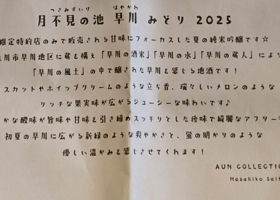 つきみずいけ はやかわ
月不見の池 早川 みどり 2025
限定特約店のみで販売される甘味にフォーカスした夏の純米吟醸です☆
魚川市早川地区に蔵を構え「早川の酒米」「早川の水」「早川の蔵人」により
「早川の風土」の中で醸された早川を感じる地酒です!
スカットやホイップクリームのような立ち香、瑞々しいメロンのような
リッチな果実味が広がるジューシーな味わいです♪
かな酸味が旨味や甘味を引き締めスッキリとした後味で綺麗なアフター
初夏の早川に広がる新緑のような爽やかさと、蛍の明かりのような
優しい温かみを感じさせてくれます!
AUN COLLECTIO
Masahiko Sait